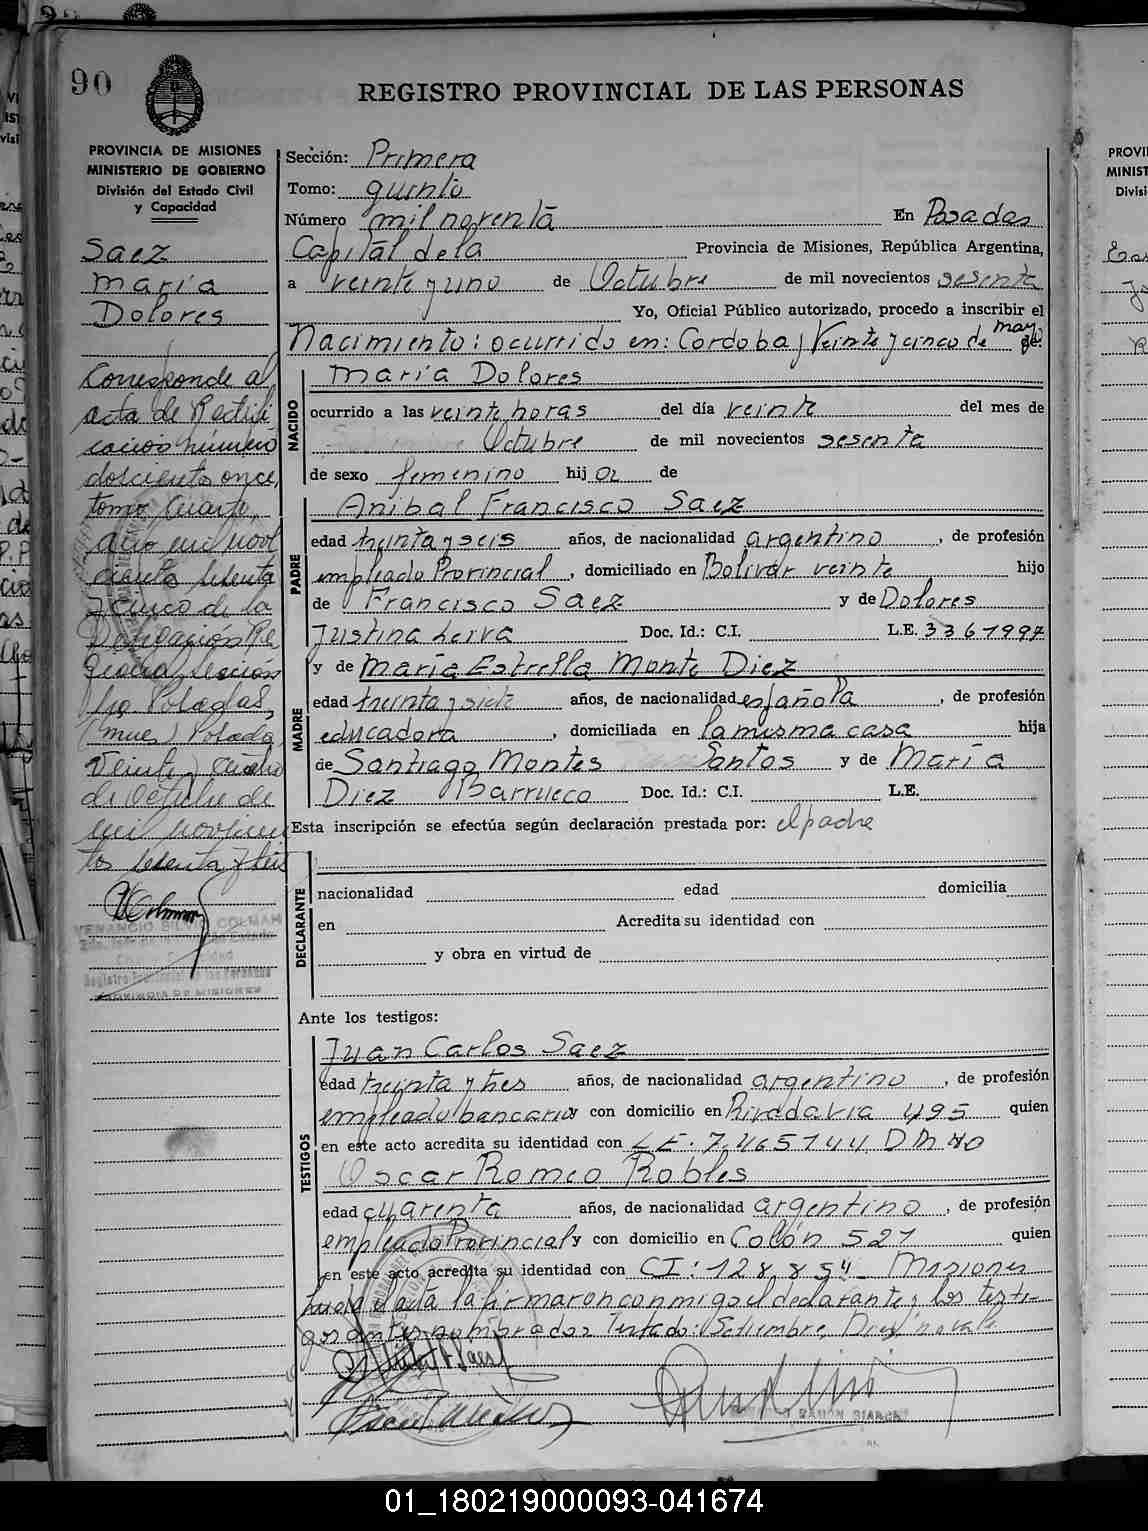 90
REGISTRO PROVINCIAL DE LAS PERSONAS
PROVINCIA DE MISIONES
MINISTERIO DE GOBIERNO
División del Estado Civil
y Capacidad
Saez
maría
Dolores
Corresponde al
acta de Rectifi
cación número
doscientos once,
tomo Cuarto,
año mil nove
cientos sesenta
y cinco de la
Delegación Re
gional, sección
Posadas,
Posadas
veinte y cuatro
de Octubre de
mil novecien
tos sesenta y seis
VENANCIO SILVIO COLMAN
PROVINCIA DE MISIONES
Sección: Primera
Tomo: quinto
Número mil noventa En Posadas
Capital de la Provincia de Misiones, República Argentina,
a veinte y uno de Octubre de mil novecientos sesenta
Yo, Oficial Público autorizado, procedo a inscribir el
Nacimiento: ocurrido en: Cordoba y Veinte y cinco de mayo
NACIDO
maría Dolores
ocurrido a las veinte horas del día veinte del mes de
Octubre de mil novecientos sesenta
de sexo femenino hija de
PADRE
Anibal Francisco Saez
edad treinta y seis años, de nacionalidad argentino, de profesión
empleado Provincial, domiciliado en Bolivar veinte hijo
de Francisco Saez y de Dolores
Justina Leiva Doc. Id.: C.I. L.E. 3361997
MADRE
y de maría Estrella Monte Diez
edad treinta y siete años, de nacionalidad española, de profesión
educadora, domiciliada en la misma casa hija
de Santiago Montes Santos y de María
Diez Barrueco Doc. Id.: C.I. L.E.
Esta inscripción se efectúa según declaración prestada por: el padre
DECLARANTE
nacionalidad edad domicilia
en Acredita su identidad con
y obra en virtud de
Ante los testigos:
TESTIGOS
Juan Carlos Saez
edad treinta y tres años, de nacionalidad argentino, de profesión
empleado bancario y con domicilio en Rivadavia 495 quien
en este acto acredita su identidad con L.E. 7.465144 D M 40
Oscar Romeo Robles
edad cuarenta años, de nacionalidad argentino, de profesión
empleado Provincial y con domicilio en Colón 527 quien
en este acto acredita su identidad con CI: 128.854 Misiones
el acta la firmaron conmigo el declarante y los testi-
gos antes nombrados Testado: Setiembre, Diez no vale
01_180219000093-041674